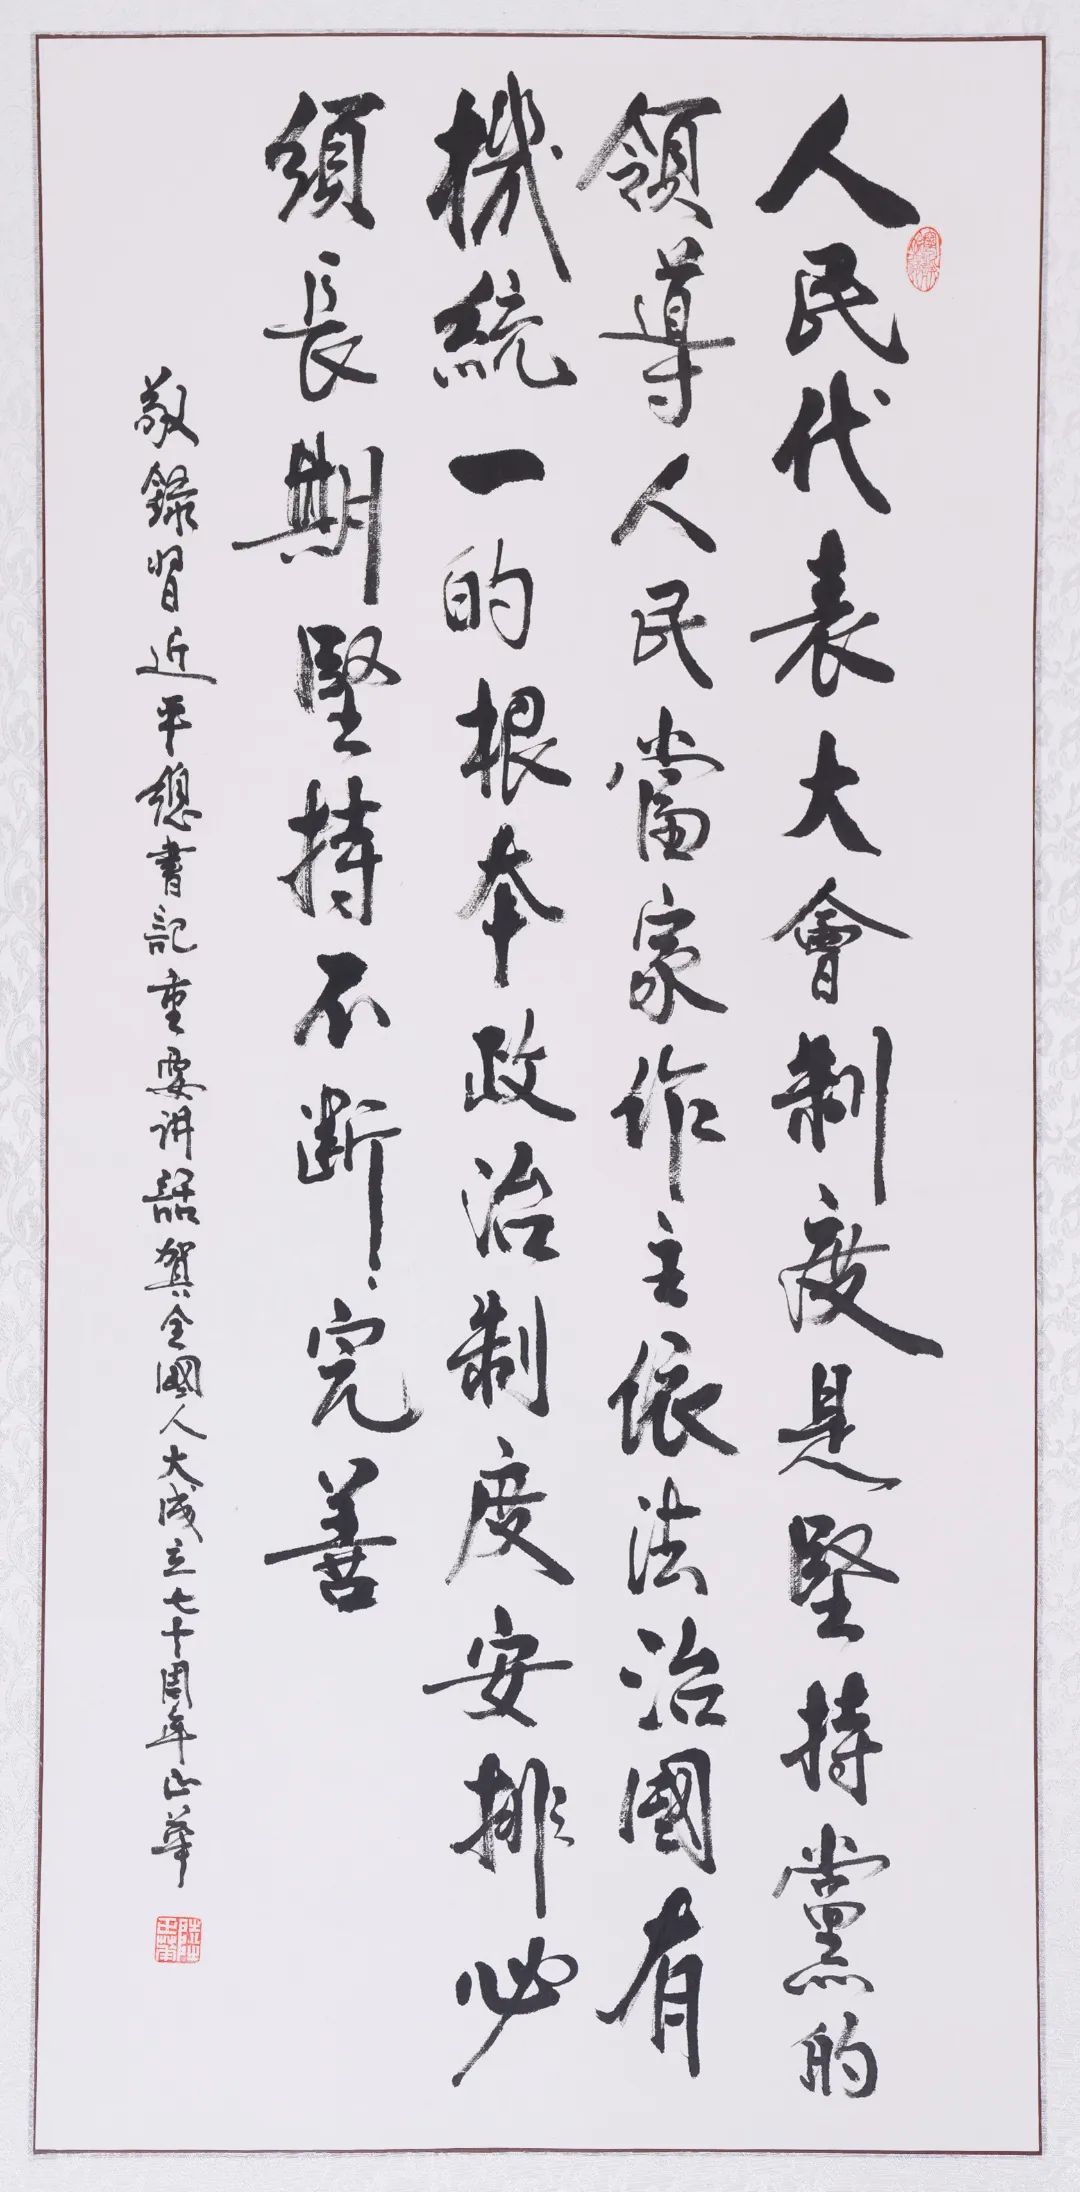 人民代表大會制度是堅持黨的
領導人民當家作主依法治國有
機統一的根本政治制度安排必
須長期堅持不斷完善
敬録習近平總書記重要讲話賀全國人大成立七十周年正華